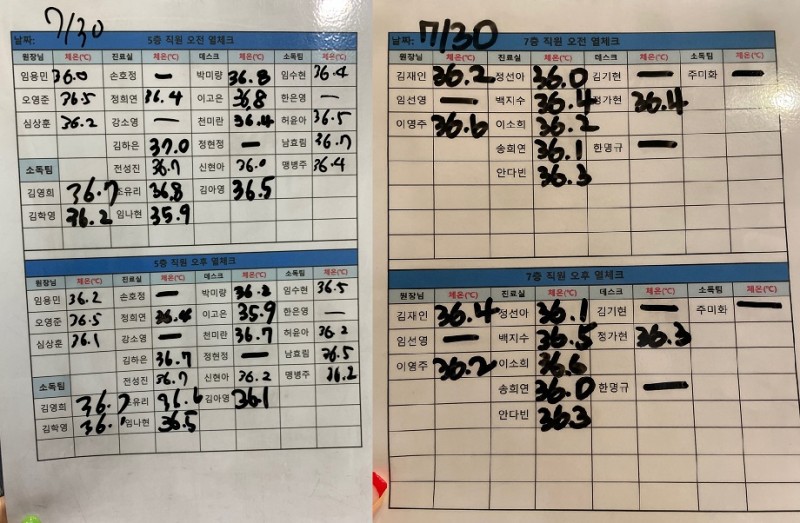 날짜: 7/30 5층 직원 오전 열체크
원장님 체온(℃) 진료실 체온(℃) 데스크 체온(℃) 소독팀 체온(℃)
임용민 36.0 손호정 — 박미량 36.8 임수현 36.4
오영준 36.5 정희연 36.4 이고은 36.8 한은영 —
심상훈 36.2 강소영 — 천미란 36.4 허윤아 36.5
김하은 37.0 정현정 — 남효림 36.7
소독팀 전성진 36.7 신현아 36.0 맹병주 36.4
김영희 36.7 조유리 36.8 김아영 36.5
김학영 36.2 임나현 35.9
5층 직원 오후 열체크
원장님 체온(℃) 진료실 체온(℃) 데스크 체온(℃) 소독팀 체온(℃)
임용민 36.2 손호정 — 박미량 36.2 임수현 36.5
오영준 36.5 정희연 36.4 이고은 35.9 한은영 —
심상훈 36.1 강소영 — 천미란 36.7 허윤아 36.2
김하은 36.7 정현정 — 남효림 36.5
소독팀 전성진 36.7 신현아 36.2 맹병주 36.2
김영희 36.7 조유리 36.6 김아영 36.1
김학영 36.1 임나현 36.5
날짜: 7/30 7층 직원 오전 열체크
원장님 체온(℃) 진료실 체온(℃) 데스크 체온(℃) 소독팀 체온(℃)
김재인 36.2 정선아 36.0 김기현 — 주미화 —
임선영 — 백지수 36.4 정가현 36.4
이영주 36.6 이소희 36.2
송희연 36.1 한명규 —
안다빈 36.3
7층 직원 오후 열체크
원장님 체온(℃) 진료실 체온(℃) 데스크 체온(℃) 소독팀 체온(℃)
김재인 36.4 정선아 36.1 김기현 — 주미화 —
임선영 — 백지수 36.5 정가현 36.3
이영주 36.2 이소희 36.6
송희연 36.0 한명규 —
안다빈 36.3